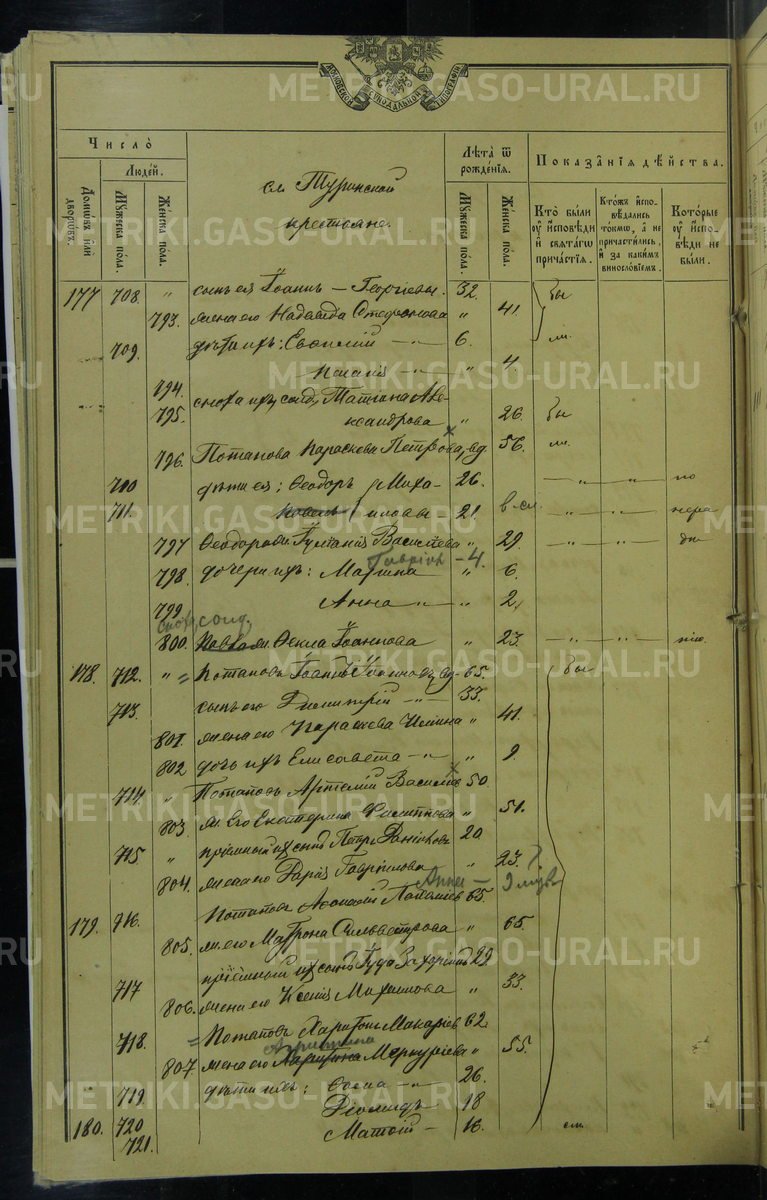 МОСКОВСКОЙ СѴНОДАЛЬНОЙ ТИПОГРАФІИ
Число̀
Людей.
Домѡвъ или дворѡвъ.
Мꙋжеска пола.
Женска пола.
сл. Туринской
крестьяне.
Лѣта ѿ рожденїѧ.
Мꙋжеска пола.
Женска пола.
Показанїѧ дѣйства.
Кто были ᲂу исповѣди и свѧтагѡ причастїѧ.
Ктожъ исповѣдались токмѡ, а не причастились, и за какимъ винословїемъ.
Которые ᲂу исповѣди не были.
177 708. " сынъ ея Іоаннъ — Георгіевъ. 32. бы
793. жена его Надежда Стефанова " 41.
709. дѣти ихъ: — " — 6. ли.
794. — " — " 4.
795. сноха ихъ, солд. Татіана Александрова " 26. бы
796. Потапова Параскева Петрова, вд. 56. ли.
710 дѣти ея: Ѳеодоръ Миха- 26. — " — " — по
711. Павелъ иловы 21. в сл. — " — " — нера
797 Ѳеодора ж. Васильева " 29. — " — " — дѣ
Гавріилъ — 4.
798. дочери ихъ: Марина " 6.
799. Анна — " — " 2.
сноха, солд.
800. Павла ж. Ѳекла Іоаннова " 23. — " — " — нію.
178. 712. " = Потаповъ Іоаннъ Іоанновъ, вд. 65. бы
713. сынъ его Димитрій — " — 33.
801. жена его Параскева Ильина " 41.
802 дочь ихъ Елисавета — " — " 9.
714. " Потаповъ Артемій Васильевъ 50.
803. ж. его Екатерина Филиппова " 51.
715 " пріемный ихъ сынъ Петръ 20
804. жена его Дарія Гавріилова " 23. ?
Анна —
179. 716. Потаповъ Аѳанасій 65.
805. ж. его Матрона Сильвестрова " 65.
717 пріемный ихъ сынъ Іуда Захаріинъ 29.
806. жена его Ксенія Михаилова " 33.
718. = Потаповъ Харитонъ Макаріевъ 62.
807. жена его Харитина Меркуріева " 55.
719. дѣти ихъ: — " — 26.
720 Діомидъ 18
180. 721. Матѳій — 16. ли.
METRIKI.GASO-URAL.RU